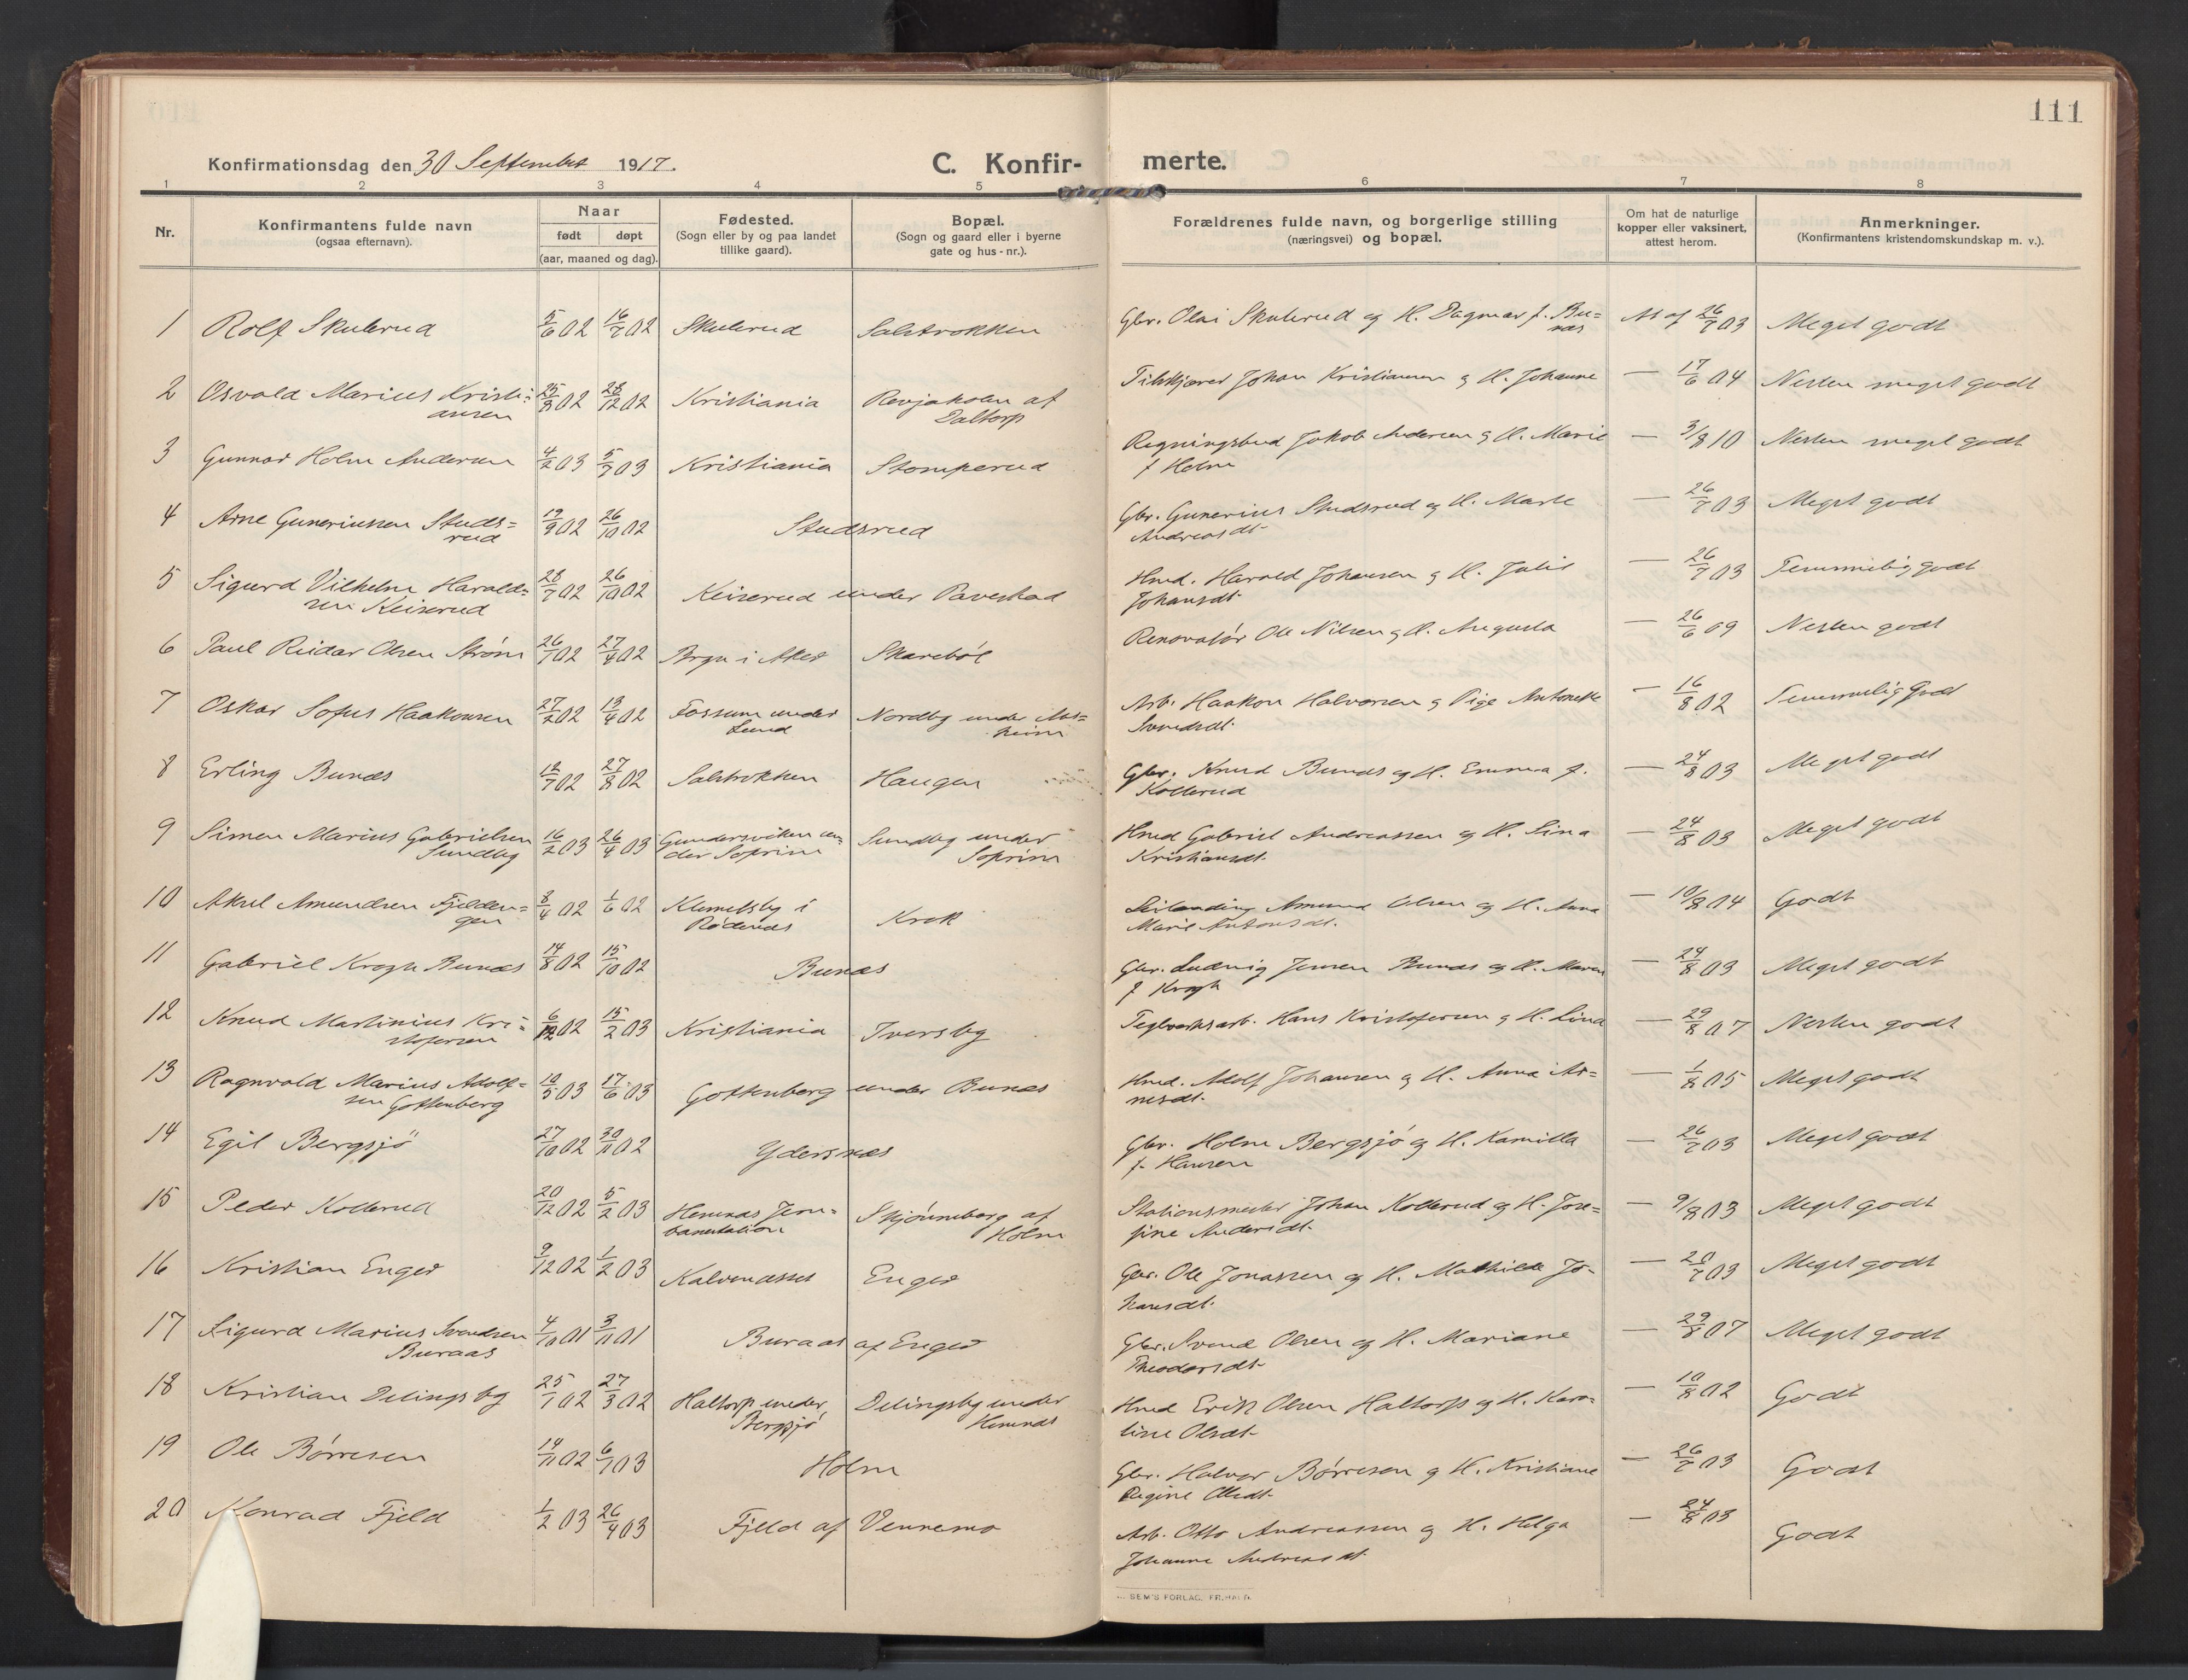 111
Konfirmationsdag den 30 September 1917.
C. Konfir-
merte.
1 2 3 4 5 6 7 8
Nr.
Konfirmantens fulde navn
(ogsaa efternavn).
Naar
født døpt
(aar, maaned og dag).
Fødested.
(Sogn eller by og paa landet
tillike gaard).
Bopæl.
(Sogn og gaard eller i byerne
gate og hus-nr.).
Forældrenes fulde navn, og borgerlige stilling
(næringsvei) og bopæl.
Om hat de naturlige
kopper eller vaksinert,
attest herom.
Anmerkninger.
(Konfirmantens kristendomskundskap m. v.).
1 Rolf Skulerud 5/6 02 16/7 02 Skulerud Gbr. Olai Skulerud og H. Dagmar f. Bu=
næs At af 26/7 03 Meget godt
2 Osvald Marius Kristi=
ansen 25/8 02 28/12 02 Kristiania Revjakolen af
Daltorp Johan Kristiansen og H. Johanne — 17/6 04 Nesten meget godt
3 Gunnar Holm Andersen 4/2 03 5/7 03 Kristiania Stomperud Regningsbud Jakob Andersen og H. Marie
f Holm — 3/8 10 Nesten meget godt
4 Arne Guneriussen Studs=
rud 19/9 02 26/10 02 Studsrud Gbr. Gunerius Studsrud og H. Marte
Andreasdt. — 26/7 03 Meget godt
5 Sigurd Vilhelm Harald=
sen Keiserud 28/7 02 26/10 02 Keiserud under Pavestad Hmd. Harald Johansen og H. Julie
Johansdt. — 26/7 03 Temmelig godt
6 Paul Reidar Olsen Strøm 26/1 02 27/4 02 Bryn i Aker Skarebøl Renovatør Ole Nilsen og H. Augusta — 26/6 09 Nesten godt
7 Oskar Sofus Haakonsen 27/2 02 13/4 02 Fossum under
Lund Nordby under Aas=
heim Arb. Haakon Halvorsen og Pige Antonette
Svendsdt. — 16/8 02 Temmelig godt
8 Erling Bunæs 12/7 02 27/8 02 Haugen Gbr. Knud Bunæs og H. Emma f.
Kollerud — 24/8 03 Meget godt
9 Simen Marius Gabrielsen
Sundby 16/2 03 26/4 03 Gundersviken un=
der Soprim Sundby under
Soprim Hmd Gabriel Andreassen og H. Lina
Kristiansdt. — 24/8 03 Meget godt
10 Aksel Amundsen Fjelden=
gen 8/4 02 1/6 02 Klemetsby i
Rødenæs Krok Leilending Amund Olsen og H. Anna
Marie Antonsdt. — 10/8 04 Godt
11 Gabriel Krogh Bunæs 14/8 02 15/10 02 Bunæs Gbr. Ludvig Jensen Bunæs og H. Maren
f Krogh — 24/8 03 Meget godt
12 Knud Martinius Kri=
stofersen 6/12 02 15/2 03 Kristiania Iversby Teglverksarb. Hans Kristofersen og H. Lina — 29/8 07 Nesten godt
13 Ragnvald Marius Adolf=
sen Gottenberg 10/5 03 17/6 03 Gottenberg under Bunæs Hmd. Adolf Johansen og H. Anna Ar=
nesdt. — 1/8 05 Meget godt
14 Egil Bergsjö 27/10 02 30/11 02 Ydersnæs Gbr. Holm Bergsjö og H. Kamilla
f. Hansen — 26/7 03 Meget godt
15 Peder Kollerud 20/12 02 5/2 03 Hemnæs Jern=
banestation Skjønneberg af
Holm Stationsmester Johan Kollerud og H. Jose=
fine Andersdt. — 9/8 03 Meget godt
16 Kristian Enger 9/12 02 1/2 03 Kalvenæsset Enger Gbr. Ole Jonassen og H. Mathilde Jo-
hansdt. — 20/7 03 Meget godt
17 Sigurd Marius Svendsen
Buraas 4/10 01 3/11 01 Buraas af Enger Gbr. Svend Olsen og H. Mariane
Theodorsdt — 29/8 07 Meget godt
18 Kristian Delingsby 25/1 02 27/3 02 Haltorp under
Bergsjö Delingsby under
Hemnæs Hmd Erik Olsen Haltorp og H. Karo=
line Olsdt — 10/8 02 Godt
19 Ole Børresen 14/11 02 6/1 03 Holm Gbr. Halvor Børresen og H. Kristiane
Regine Olsdt — 26/7 03 Godt
20 Konrad Fjeld 1/2 03 26/4 03 Fjeld af Vennemo Arb. Otto Andreassen og H. Helga
Johanne Andreasdt — 24/8 03 Godt
SEM'S FORLAG, FR.HALD.